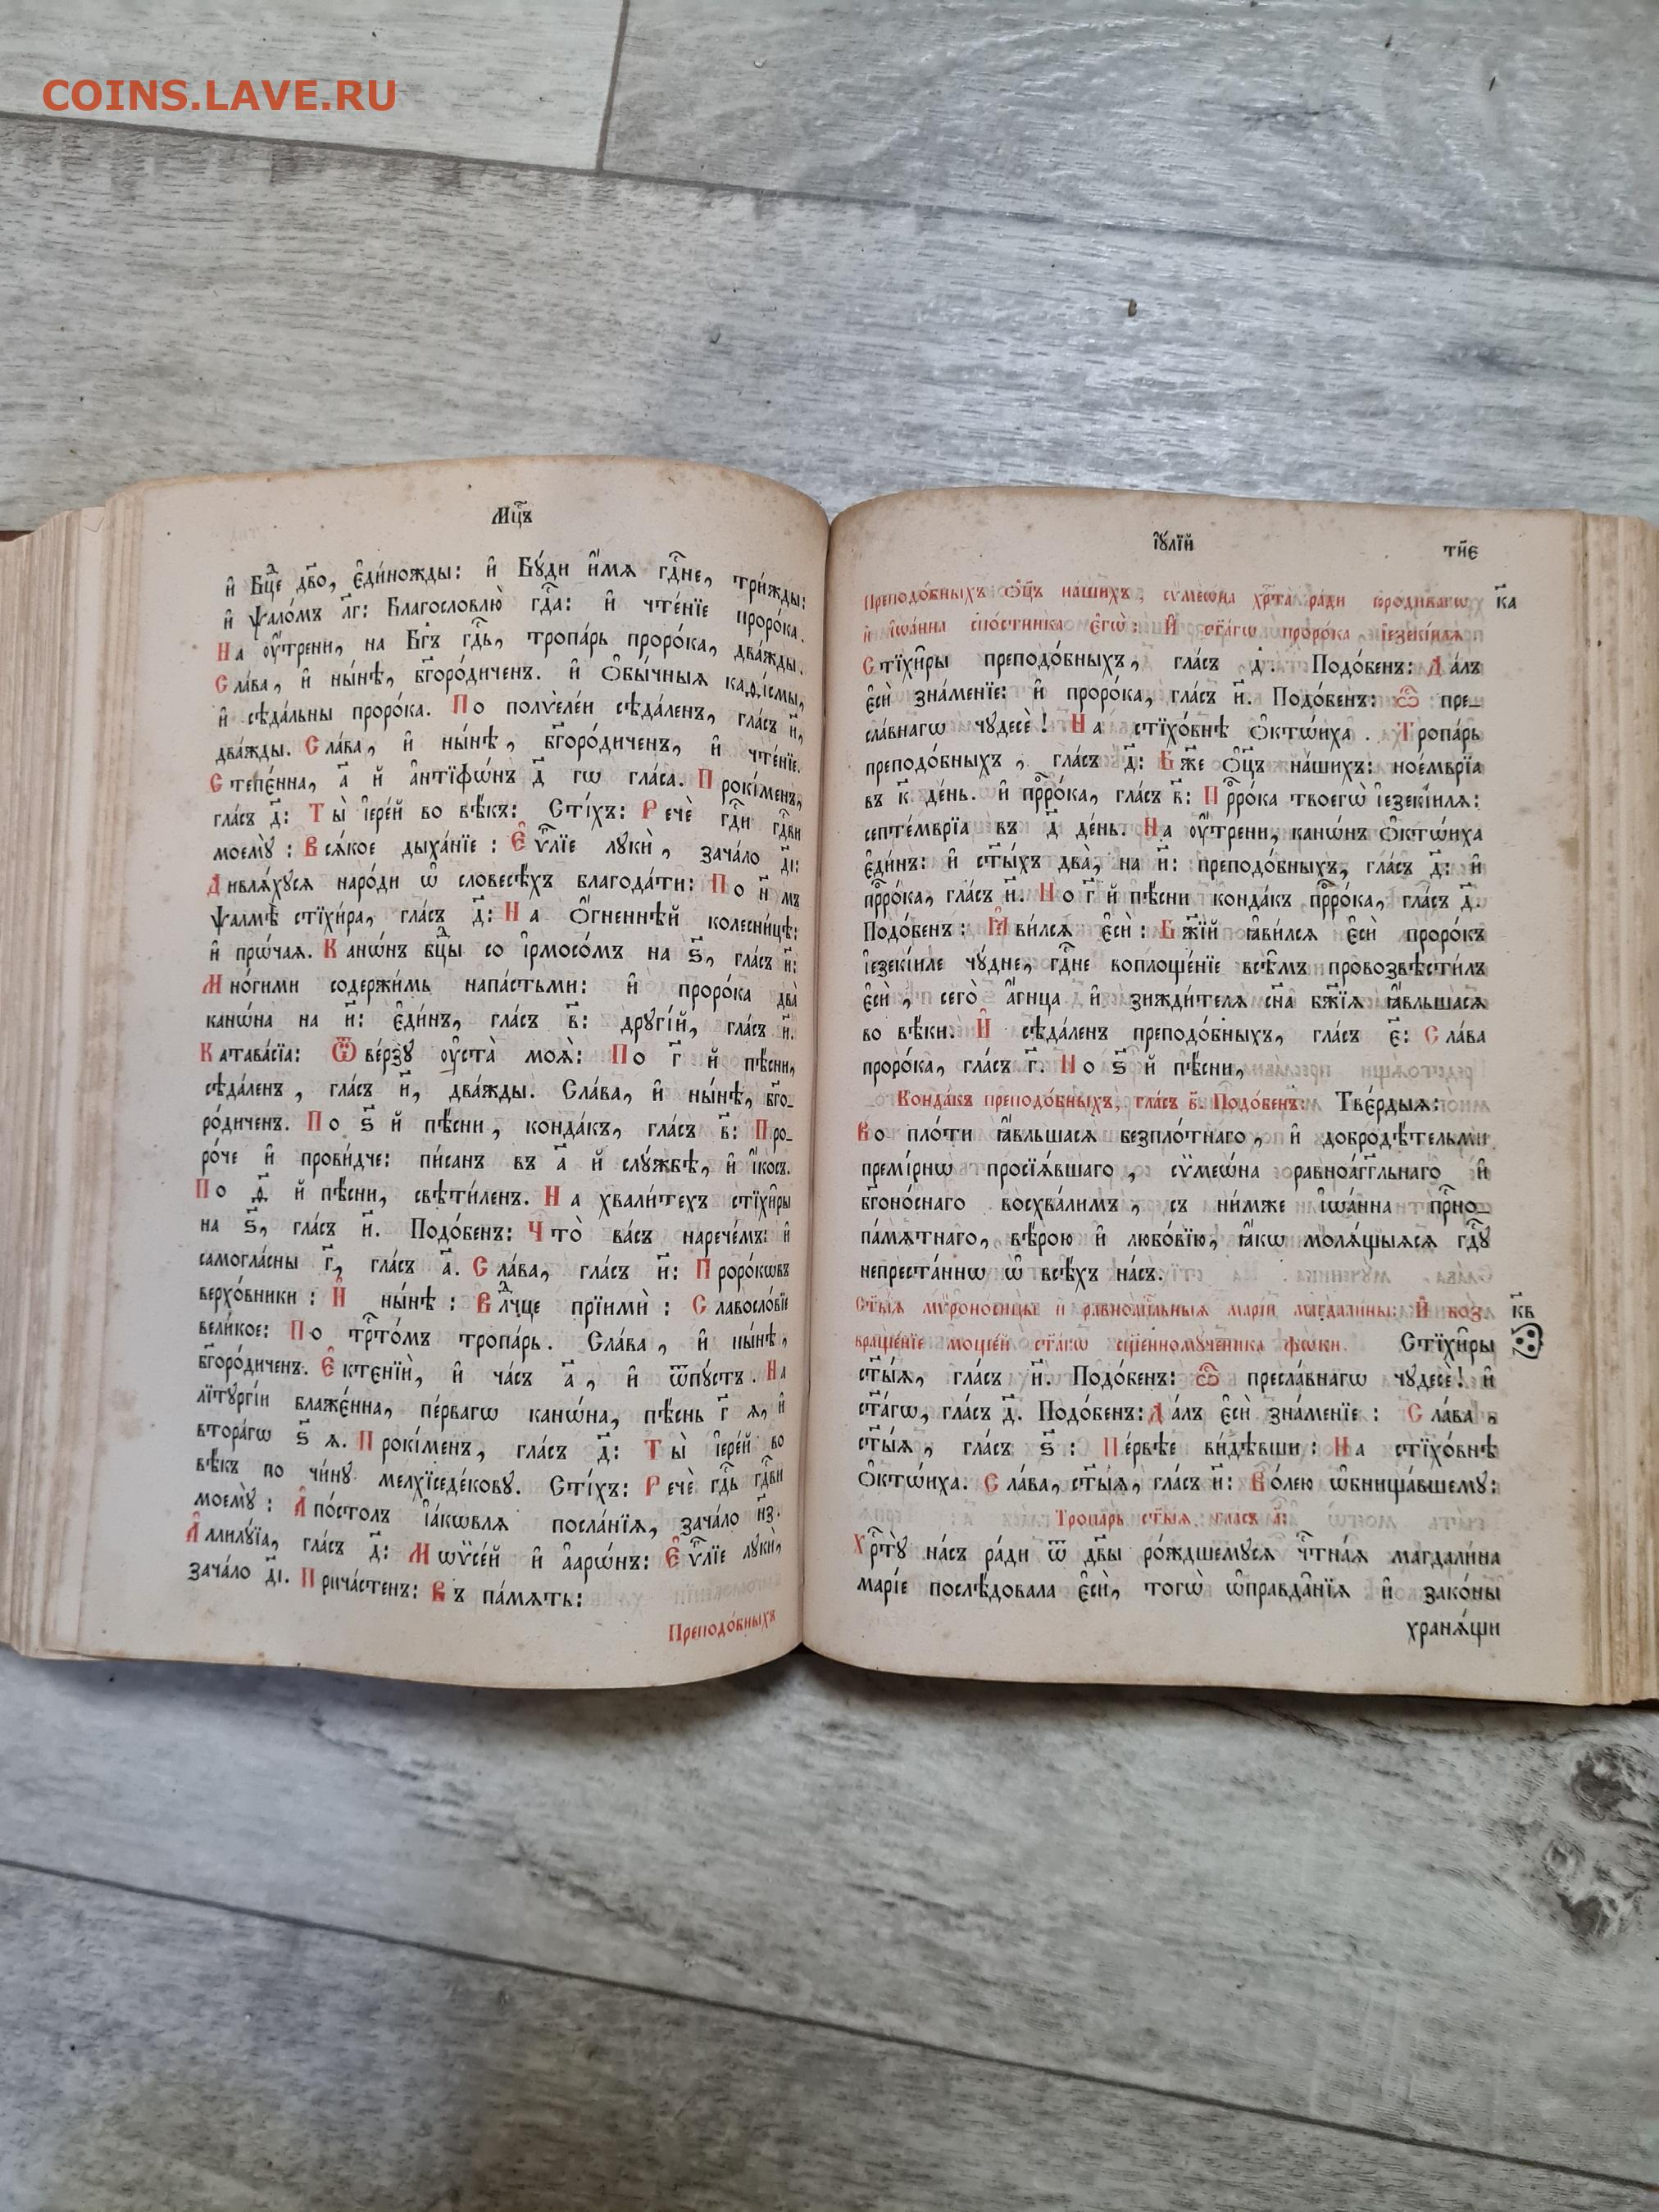 COINS.LAVE.RU
Мц҃ъ
и҆ Бцⷣе дв҃о, є҆ди́ножды: и҆ Бꙋ́ди и҆́мѧ гдⷭ҇не, три́жды:
и҆ ѱало́мъ л҃г: Благословлю̀ гдⷭ҇а: и҆ чте́нїе проро́ка.
На ᲂу҆́трени, на Бг҃ъ гдⷭ҇ь, тропа́рь проро́ка, два́жды.
Сла́ва, и҆ ны́нѣ, бг҃оро́диченъ. и҆ Ѻ҆бы́чныѧ каѳі́смы,
и҆ сѣда́льны проро́ка. По полѷеле́и сѣда́ленъ, гла́съ и҃,
два́жды. Сла́ва, и҆ ны́нѣ, бг҃оро́диченъ, и҆ чте́нїе.
Степє́нна, а҃ й а҆нтїфѡ́нъ д҃ гѡ гла́са. Прокі́менъ,
гла́съ д҃: Ты̀ і҆ере́й во вѣ́къ: Сті́хъ: Речѐ гдⷭ҇и гдⷭ҇ви
моемꙋ̀: Всѧ́кое дыха́нїе: Є҆ѵⷢ҇лїе лꙋкѝ, зача́ло д҃і:
Дивлѧ́хꙋсѧ наро́ди ѡ҆ словесѣ́хъ благода́ти: По н҃ мъ
ѱалмѣ̀ стїхи́ра, гла́съ д҃: На Ѻ҆́гненнѣй колесни́цѣ:
и҆ прѡ́чаѧ. Канѡ́нъ бцⷣы со і҆рмосо́мъ на ѕ҃, гла́съ и҃:
Мно́гими содержи́мь напа́стьми: и҆ проро́ка два̀
канѡ́на на и҃: є҆ди́нъ, гла́съ в҃: дрꙋгі́й, гла́съ и҃.
Катава́сїа: Ѿве́рзꙋ ᲂу҆ста̀ моѧ̑: По г҃ й пѣ́сни,
сѣда́ленъ, гла́съ и҃, два́жды. Сла́ва, и҆ ны́нѣ, бг҃о-
ро́диченъ. По ѕ҃ й пѣ́сни, конда́къ, гла́съ в҃: Про-
ро́че и҆ прови́дче: пи́санъ въ а҃ й слꙋ́жбѣ, и҆ і҆́косъ.
По ѳ҃ й пѣ́сни, свѣти́ленъ. На хвали́техъ стїхи̑ры
на ѕ҃, гла́съ и҃. Подо́бенъ: Что̀ ва́съ нарече́мъ: и҆
самогла́сны г҃, гла́съ а҃. Сла́ва, гла́съ и҃: Проро́кѡвъ
верхо́вники: И҆ ны́нѣ: Влⷣчце прїимѝ: Славосло́вїе
вели́кое: По трⷭ҇то́мъ тропа́рь. Сла́ва, и҆ ны́нѣ,
бг҃оро́диченъ. Є҆ктєнїѝ, и҆ ча́съ а҃, и҆ ѿпꙋ́стъ. На
лїтꙋргі́и блажє́нна, пе́рвагѡ канѡ́на, пѣ́снь г҃ ѧ, и҆
втора́гѡ ѕ҃ ѧ. Прокі́менъ, гла́съ д҃: Ты̀ і҆ере́й во
вѣ́къ по чи́нꙋ мелхїседе́ковꙋ. Сті́хъ: Речѐ гдⷭ҇ь гдⷭ҇ви
моемꙋ̀: А҆по́столъ і҆а́кѡвлѧ посла́нїѧ, зача́ло н҃з.
А҆ллилꙋ́їа, гла́съ д҃: Мѡѷсе́й и҆ а҆арѡ́нъ: Є҆ѵⷢ҇лїе лꙋкѝ,
зача́ло д҃і. Прича́стенъ: Въ па́мѧть:
Преподо́бныхъ
і҆ꙋлїй
тн҃є
Преподо́бныхъ ѻ҆ц҃ъ на́шихъ, сѷмеѡ́на хрⷭ҇та̀ ра́ди ю҆ро́дивагѡ к҃а
и҆ і҆ѡа́нна спо́стника є҆гѡ̀: И҆ ст҃а́гѡ проро́ка, і҆езекі́илѧ
Стїхи̑ры преподо́бныхъ, гла́съ д҃. Подо́бенъ: Да́лъ
є҆сѝ зна́менїе: и҆ проро́ка, гла́съ и҃. Подо́бенъ: Ѽ пре-
сла́внагѡ чꙋдесѐ! На стїхо́внѣ Ѻ҆ктѡ́иха. Тропа́рь
преподо́бныхъ, гла́съ д҃: Бж҃е ѻ҆ц҃ъ на́шихъ: ное́мврїа
въ к҃ де́нь. и҆ прⷪ҇ро́ка, гла́съ в҃: Прⷪ҇ро́ка твоегѡ̀ і҆езекі́илѧ:
септе́мврїа въ д҃ де́нь. На ᲂу҆́трени, канѡ́нъ Ѻ҆ктѡ́иха
є҆ди́нъ: и҆ ст҃ы́хъ два̀, на и҃: преподо́бныхъ, гла́съ д҃: и҆
прⷪ҇ро́ка, гла́съ и҃. По г҃ й пѣ́сни конда́къ прⷪ҇ро́ка, гла́съ д҃.
Подо́бенъ: Ꙗ҆ви́лсѧ є҆сѝ: Бж҃їй ꙗ҆ви́лсѧ є҆сѝ проро́къ
і҆езекі́иле чꙋ́дне, гдⷭ҇не воплоще́нїе всѣ̑мъ провозвѣсти́лъ
є҆сѝ, сего̀ а҆́гнца и҆ зижди́телѧ сн҃а бж҃їѧ ꙗ҆́вльшасѧ
во вѣ́ки. И҆ сѣда́ленъ преподо́бныхъ, гла́съ є҃: Сла́ва
проро́ка, гла́съ г҃. По ѕ҃ й пѣ́сни,
Конда́къ преподо́бныхъ, гла́съ в҃. Подо́бенъ: Твє́рдыѧ:
Во пло́ти ꙗ҆́вльшасѧ безпло́тнаго, и҆ добродѣ́тельми
премі́рнѡ просїѧ́вшаго, сѷмеѡ́на равноа́гг҃льнаго и҆
бг҃оно́снаго восхва́лимъ, съ ни́мже і҆ѡа́нна прⷭ҇но-
па́мѧтнаго, вѣ́рою и҆ любо́вїю, ꙗ҆́кѡ молѧ́щыѧсѧ гдⷭ҇ꙋ
непреста́ннѡ ѡ҆ всѣ́хъ на́съ.
Ст҃ы́ѧ мѷроно́сицы и҆ равноапⷭ҇льныѧ марі́и магдали́ны: И҆ воз- к҃в
враще́нїе моще́й ст҃а́гѡ сщ҃енномꙋ́ченика фѡ́ки. Стїхи̑ры
ст҃ы́ѧ, гла́съ и҃. Подо́бенъ: Ѽ пресла́внагѡ чꙋдесѐ! и҆
ст҃а́гѡ, гла́съ д҃. Подо́бенъ: Да́лъ є҆сѝ зна́менїе: Сла́ва,
ст҃ы́ѧ, гла́съ ѕ҃: Пе́рвѣе ви́дѣвши: На стїхо́внѣ
Ѻ҆ктѡ́иха. Сла́ва, ст҃ы́ѧ, гла́съ и҃: Во́лею ѡ҆бнища́вшемꙋ:
Тропа́рь ст҃ы́ѧ, гла́съ а҃:
Хрⷭ҇тꙋ̀ на́съ ра́ди ѿ дв҃ы ро́ждшемꙋсѧ чⷭ҇тна́ѧ магдали́на
марі́е послѣ́довала є҆сѝ, тогѡ̀ ѡ҆правда̑нїѧ и҆ зако́ны
хранѧ́щи